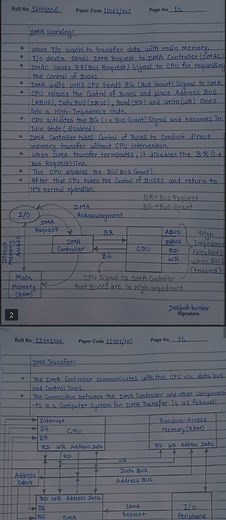 Roll No Paper Code Page No 10
DMA Working:
When I/O wants to transfer data with main Memory.
I/O device sends DMA Request to DMA Controller (DMAC).
DMAC Sends BR (Bus Request) Signal to CPU for requesting
the control of Buses.
DMA waits until CPU Sends BG (Bus Grant) Signal to DMA.
CPU release the Control of Buses and place Address Bus
(ABUS), Data Bus (DBUS), Read (RD) and Write (WR) lines
Into a High-Impedence state.
CPU activates the BG line (Bus Grant) Signal and becomes in
Idle state (disabled).
DMA Controller takes Control of Buses to Conduct direct
memory transfer without CPU intervention.
When DMA transfer terminates, it disables the BR (i.e
Bus Request) line.
The CPU disables the BG (Bus Grant).
After that CPU takes the Control of Buses and return to
its normal operation.
BR = Bus Request
BG = Bus Grant
DMA
Acknowledgment
I/O
DMA
Request
DMA
Controller
BR
BG
CPU
ABUS
DBUS
RD
WR
High
Impedance
(disabled)
Direct Memory Access
Main
Memory
(RAM)
CPU Signal to DMA Controller
that Buses are in High-impedence
2
Signature
Roll No Paper Code Page No 11
DMA Transfer:
The DMA Controller communicates with the CPU via data bus
and Control lines.
The Connection between the DMA Controller and other components
in a Computer System for DMA Transfer is as follows:
Interrupt
BG
BR
CPU
RD WR Address Data
Random-Access
Memory (RAM)
RD WR Address Data
RD
WR
Data Bus
Address Bus
Address
Select
RD WR Address Data
DS
RS
DMA
I/O
Peripheral